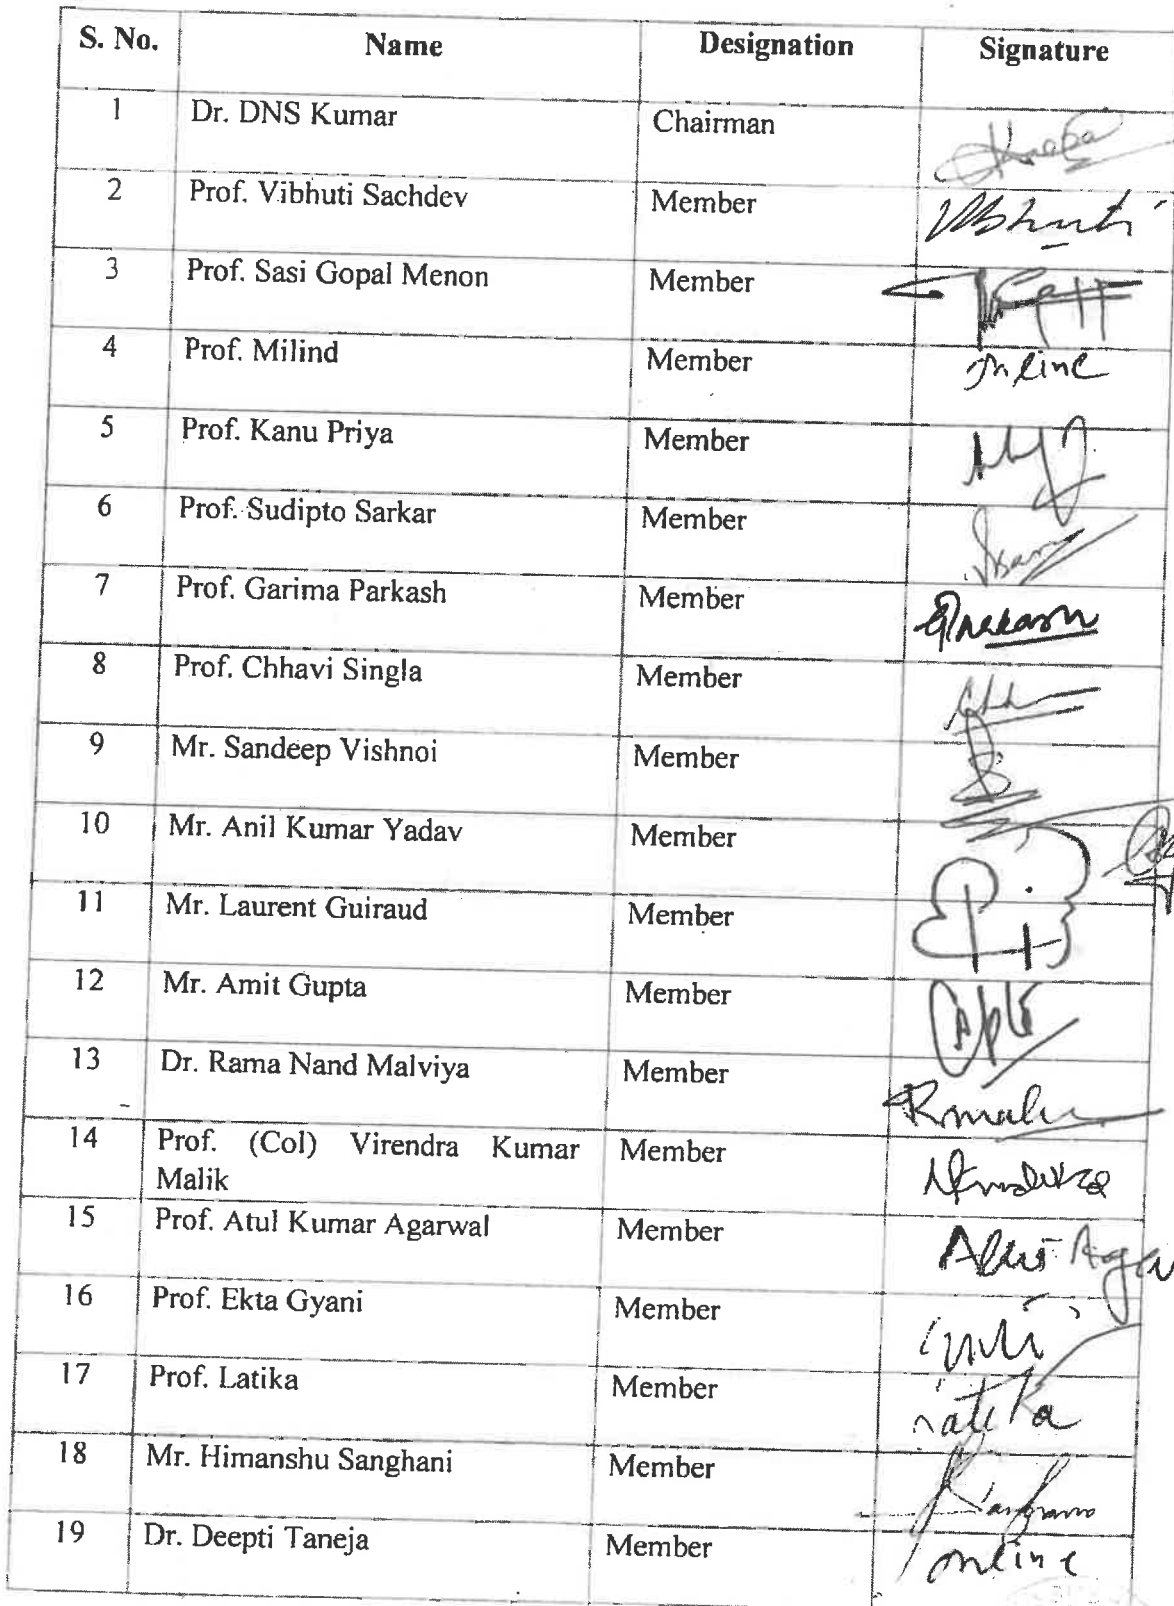 S. No. Name Designation Signature
1 Dr. DNS Kumar Chairman
2 Prof. Vibhuti Sachdev Member Vibhuti
3 Prof. Sasi Gopal Menon Member
4 Prof. Milind Member online
5 Prof. Kanu Priya Member
6 Prof. Sudipto Sarkar Member
7 Prof. Garima Parkash Member
8 Prof. Chhavi Singla Member
9 Mr. Sandeep Vishnoi Member
10 Mr. Anil Kumar Yadav Member
11 Mr. Laurent Guiraud Member
12 Mr. Amit Gupta Member
13 Dr. Rama Nand Malviya Member
14 Prof. (Col) Virendra Kumar Member
Malik
15 Prof. Atul Kumar Agarwal Member
16 Prof. Ekta Gyani Member
17 Prof. Latika Member Latika
18 Mr. Himanshu Sanghani Member
19 Dr. Deepti Taneja Member online